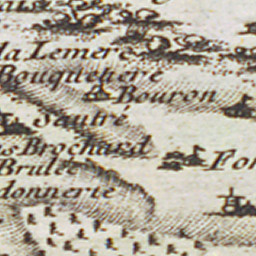 la Lemere
Bouquetiere
Bouron
Sautre
Brochard
Fon
Brulee
donnerie